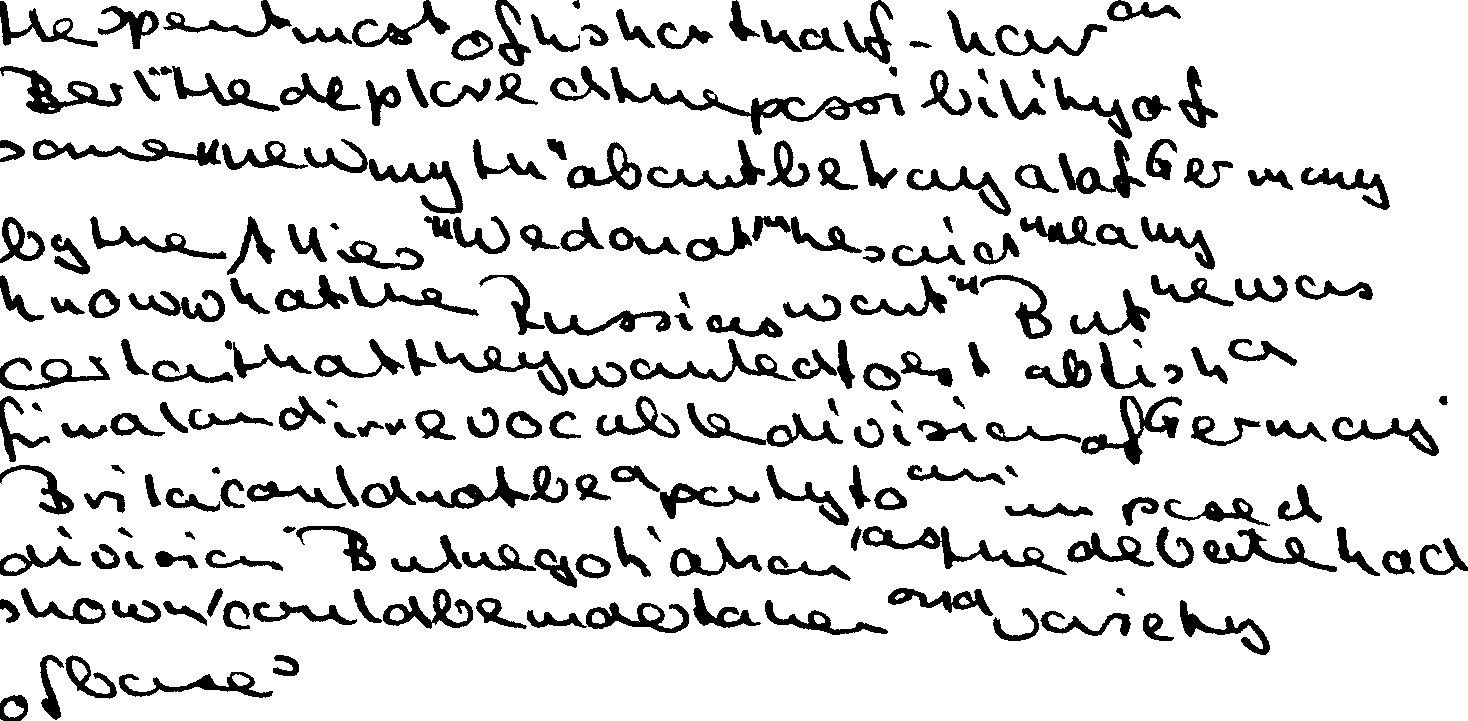 He spent most of his short half-hour on
Berlin. He deplored the possibility of
some "new myth" about betrayal of Germany
by the Allies. "We do not," he said, "really
know what the Russians want." But he was
certain that they wanted to establish a
final and irrevocable division of Germany.
Britain could not be a party to an imposed
division. But negotiation, as the debate had
shown, could be undertaken on a variety
of bases